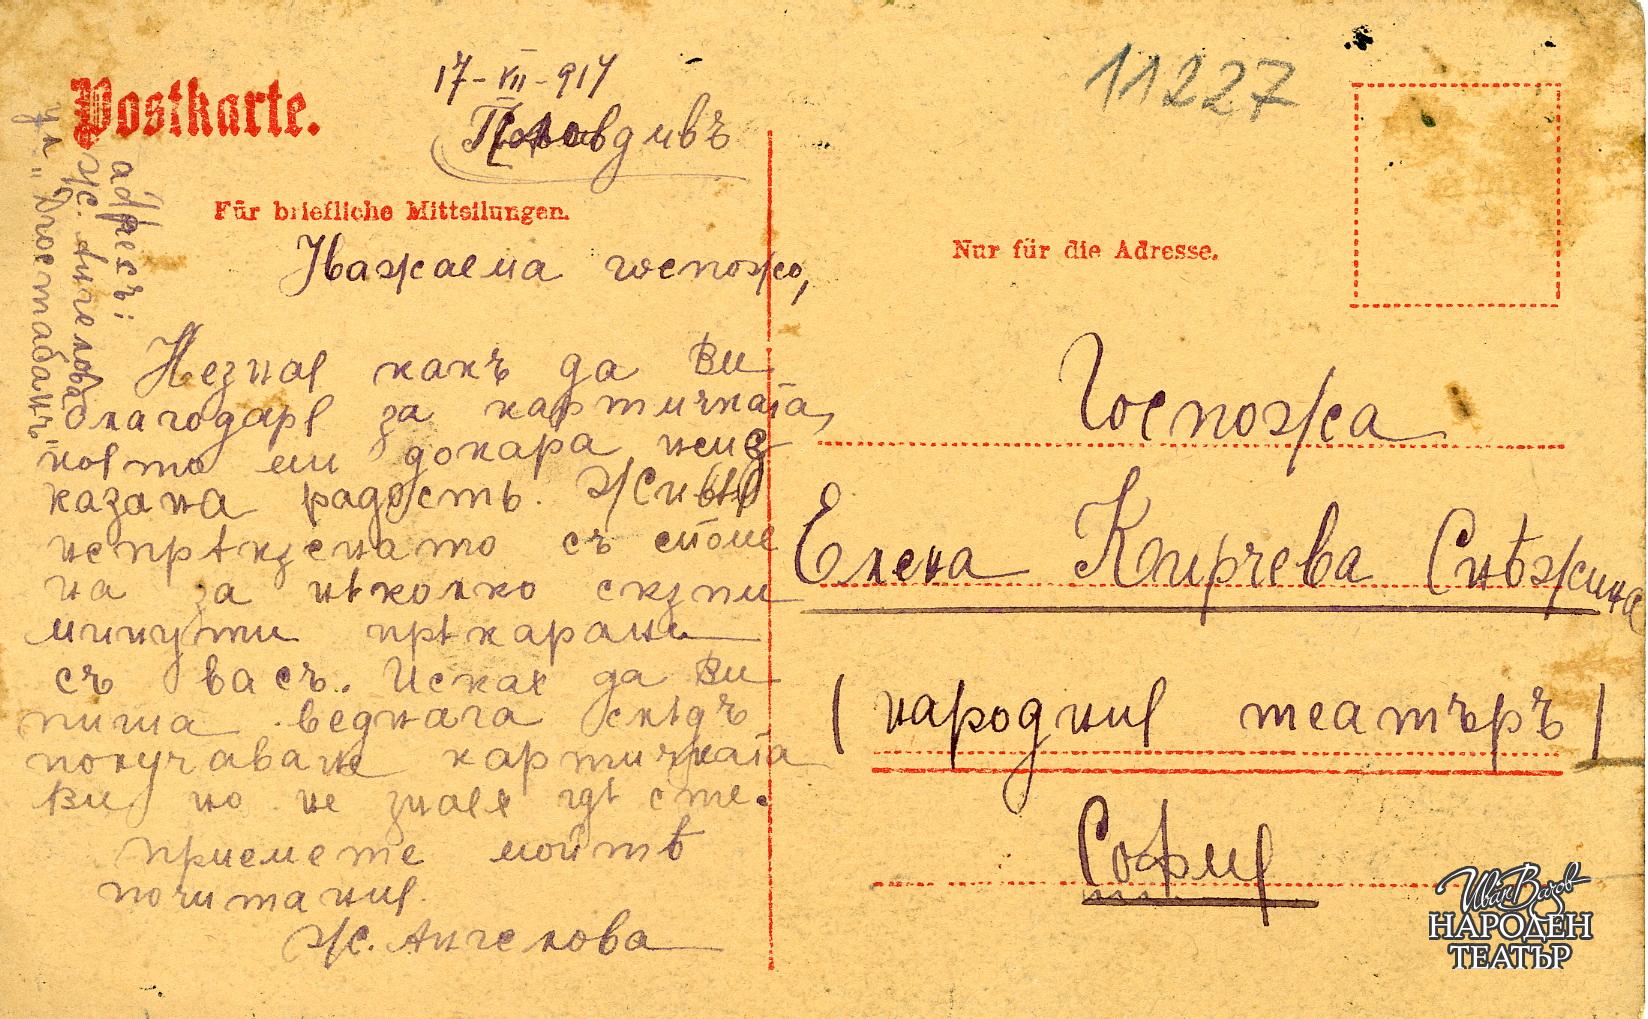 Postkarte.
17-VII-917
Пловдивъ
Für briefliche Mitteilungen.
адресъ:
Ж. Ангелова
ул „
Уважаема госпожо,
Незная какъ да Ви
благодаря за картичката,
която ми докара неиз
казана радость. Живѣя
непрѣкѫснато съ споме
на за нѣколко скѫпи
минути прѣкарани
съ васъ. Исках да Ви
пиша веднага слѣдъ
получаване картичката
Ви но не знаех гдѣ сте.
Приемете моитѣ
почитания.
Ж. Ангелова
11227
Nur für die Adresse.
Госпожа
Елена Кирчева Снѣжина
(народния театъръ)
София
Иван Вазов
НАРОДЕН
ТЕАТЪР